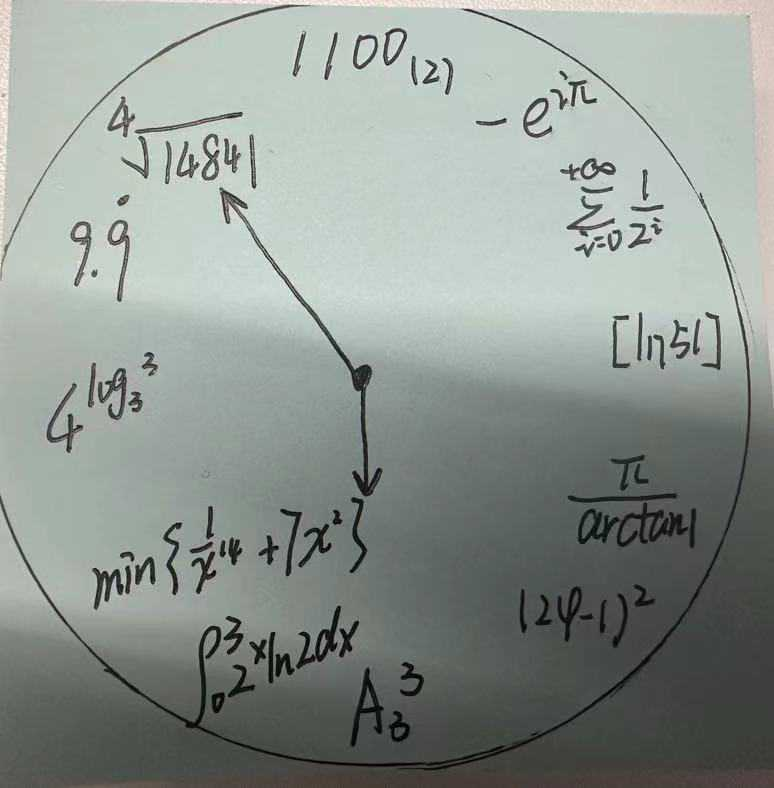 1100₍₂₎
-e^{iπ}
\sum_{i=0}^{+∞} \frac{1}{2^i}
[ln51]
\frac{π}{arctan1}
(2φ-1)²
A_3^3
\int_0^3 2^x ln2dx
min{\frac{1}{x^{14}} + 7x²}
4^{log_3 3}
9.9̇
\sqrt[4]{14841}